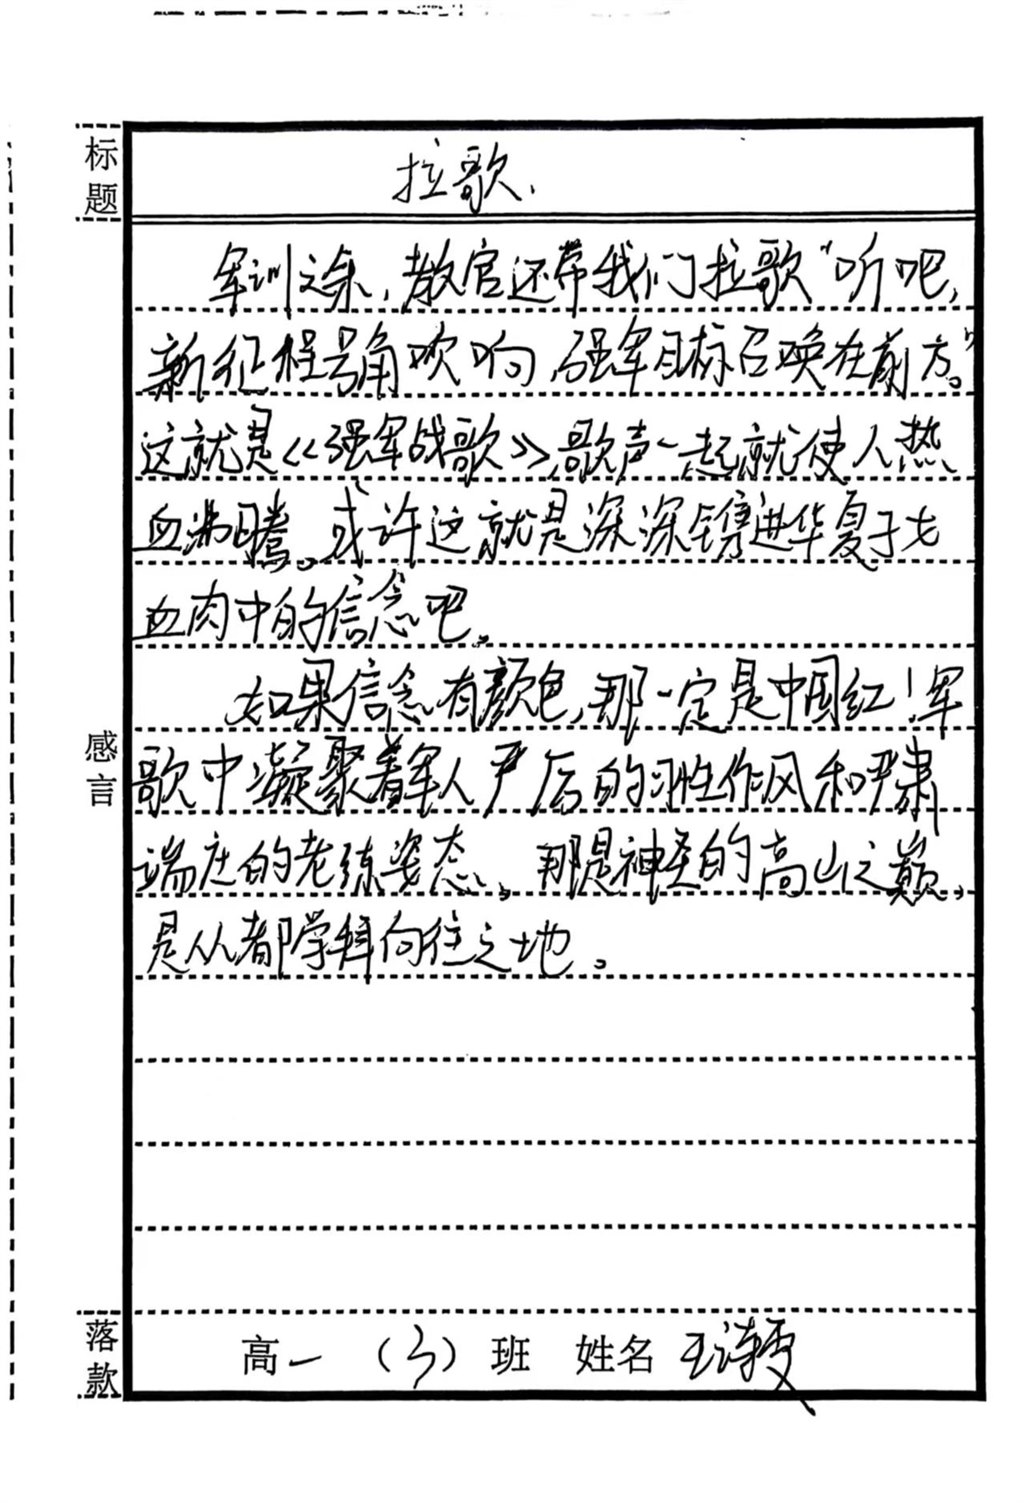 标题
拉歌、
军训之余，教官还带我们拉歌“听吧，
新征程号角吹响，强军目标召唤在前方。”
这就是《强军战歌》，歌声一起就使人热
血沸腾。或许这就是深深镌进华夏子
血肉中的信念吧。
如果信念有颜色，那一定是中国红！军
歌中凝聚着军人严厉的习性作风和严肃
端庄的老练姿态。那是神圣的高山之巅，
是向往之地。
感言
落款
高一（3）班 姓名 王诗